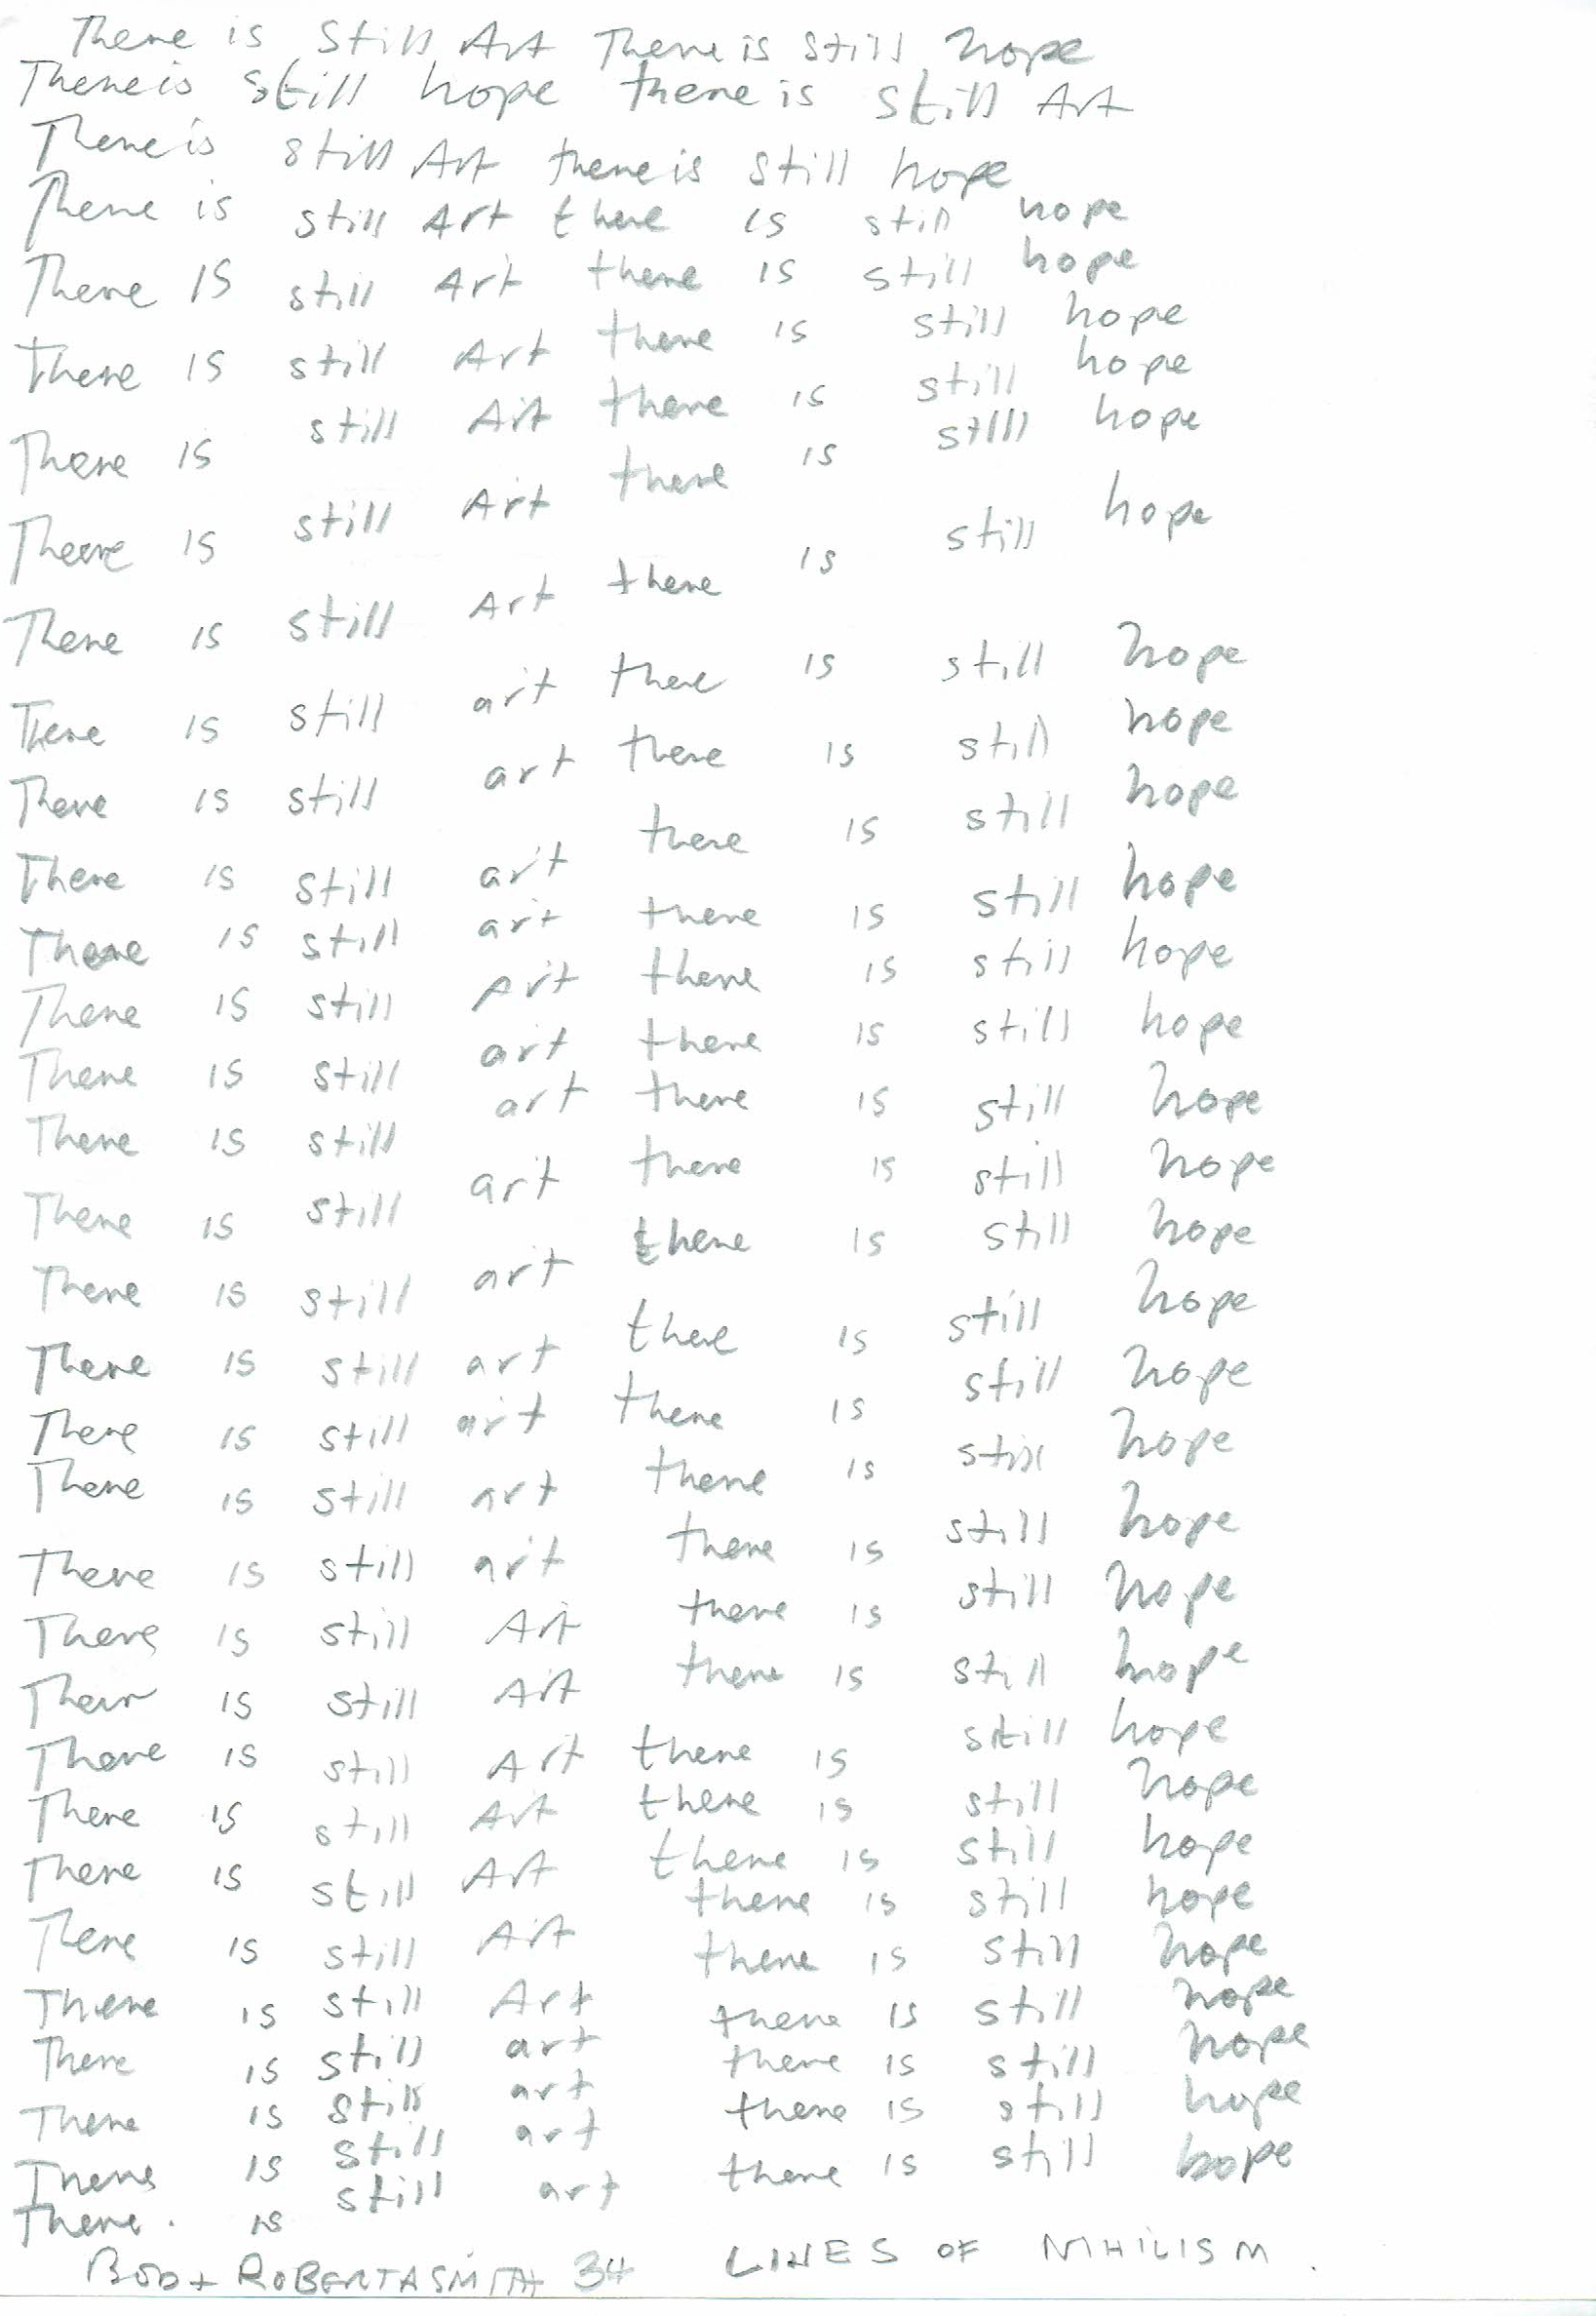 There is Still Art There is still hope
There is still hope there is still Art
There is still Art there is still hope
There is still Art there is still hope
There IS still Art there is still hope
There IS still Art there is still hope
There is still Art there is still hope
There is still Art there is still hope
There is still Art there is still hope
There is still art there is still hope
There is still art there is still hope
There is still art there is still hope
There is still art there is still hope
There is still Art there is still hope
There is still art there is still hope
There is still art there is still hope
There is still art there is still hope
There is still art there is still hope
There is still art there is still hope
There is still art there is still hope
There is still art there is still hope
There is still art there is still hope
There is still Art there is still hope
Their is still Art there is still hope
There is still Art there is still hope
There is still Art there is still hope
There is still Art there is still hope
There is still Art there is still hope
There is still Art there is still hope
There is still art there is still hope
There is still art there is still hope
There is still art there is still hope
There. is still art there is still hope
BOB + ROBERTA SMITH 34 LINES OF NIHILISM.